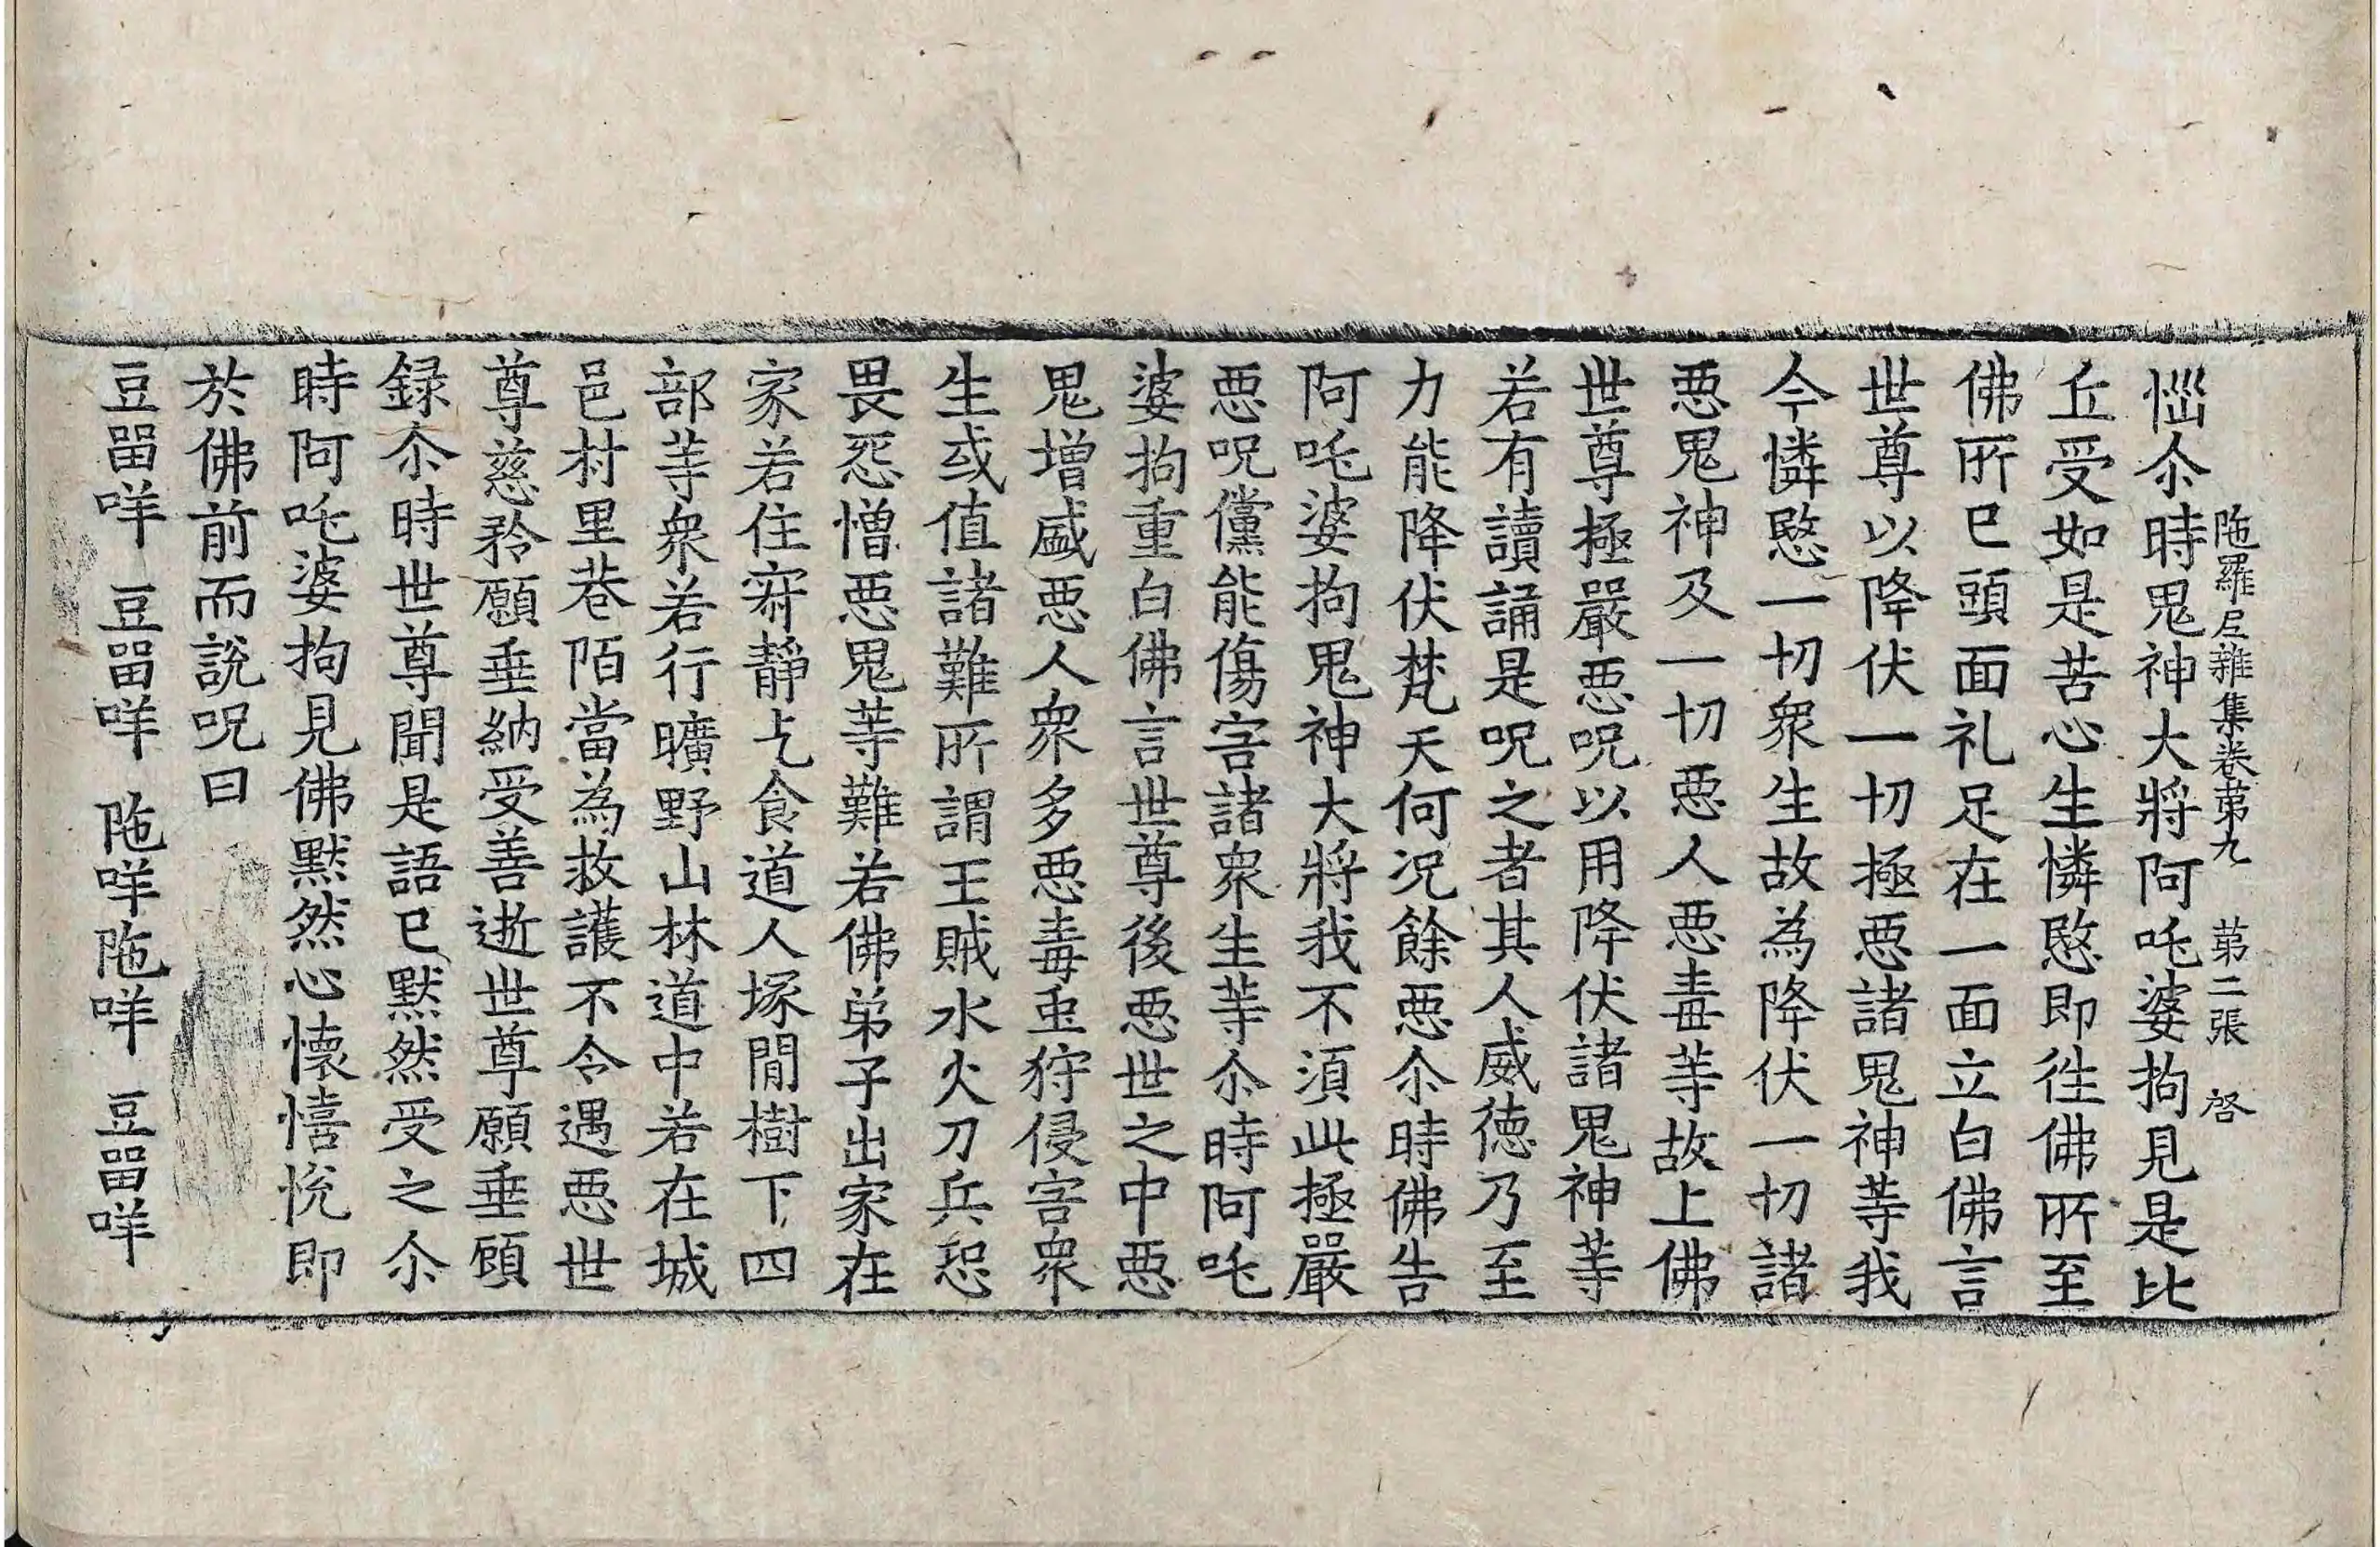 陁羅尼雜集卷苐九 苐二張 啓
惱尒時鬼神大將阿吒婆拘見是比
丘受如是苦心生憐愍即徃佛所至
佛所已頭面礼足在一面立白佛言
世尊以降伏一切極惡諸鬼神䓁我
今憐愍一切衆生故為降伏一切諸
惡鬼神及一切惡人惡毒䓁故上佛
世尊極嚴惡呪以用降伏諸鬼神䓁
若有讀誦是呪之者其人威德乃至
力能降伏梵天何况餘惡尒時佛告
阿吒婆拘鬼神大將我不湏此極嚴
惡呪儻能傷害諸衆生䓁尒時阿吒
婆拘重白佛言世尊後惡世之中惡
鬼增盛惡人衆多惡毒䖝狩侵害衆
生或值諸難所謂王賊水火刀兵恐
畏怨憎惡鬼䓁難若佛弟子出家在
家若住寂靜乞食道人塚間樹下四
部䓁衆若行曠野山林道中若在城
邑村里巷陌當為救護不令遇惡世
尊慈矜願垂納受善逝世尊願垂顧
録尒時世尊聞是語已黙然受之尒
時阿吒婆拘見佛黙然心懷憘恱即
於佛前而說呪曰
豆畱咩 豆畱咩 陁咩陁咩 豆畱咩